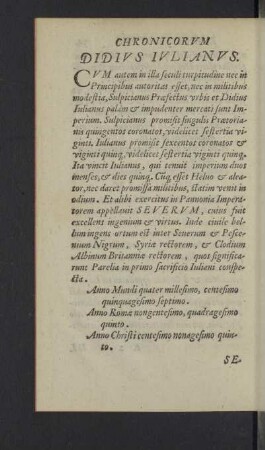 CHRONICORVM
DIDIVS IVLIANVS.
CVM autem in illa seculi turpitudine nec in
Principibus autoritas esset, nec in militibus
modestia, Sulpicianus Præfectus vrbis et Didius
Iulianus palàm & impudenter mercati sunt Im-
perium, Sulpicianus promisit singulis Prætoria-
nis quingentos coronatos, videlicet sestertia vi-
ginti. Iulianus promisit sexcentos coronatos &
viginti quinq, videlicet sestertia viginti quinq.
Ita vincit Iulianus, qui tenuit imperium duos
menses, & dies quinq. Cùq esset Helvo & alea-
tor, nec daret promissa militibus, statim venit in
odium. Et alibi exercitus in Pannonia Impera-
torem appellauit SEVERVM, cuius fuit
excellens ingenium & virtus. Inde ciuile bel-
lum ingens ortum est inter Seuerum & Pesce-
nium Nigrum, Syriæ rectorem, & Clodium
Albinum Britanniæ rectorem, quos significa-
runt Parelia in primo sacrificio Iuliani conspe-
cta.
Anno Mundi quater millesimo, centesimo
quinquagesimo septimo.
Anno Romæ nongentesimo, quadragesimo
quinto.
Anno Christi centesimo nonagesimo quin-
to.
SE-